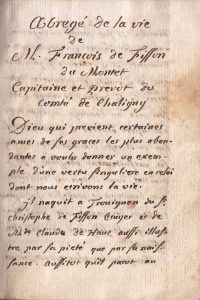 Abregé de la vie
de
M. François de Fisson
du Montet
Capitaine et prevot du
Comté de Chaligny
Dieu qui previent certaines
ames de ses graces les plus abon-
dantes a voulu donner un exem-
ple d'une vertu singuliere en celui
dont nous ecrivons la vie.
il naquit a du Sr
christophe de Fisson Ecuyer et de
Mde Claude de Haut aussi illus-
tre par sa pieté que par sa nais-
sance. aussitot quil parut au